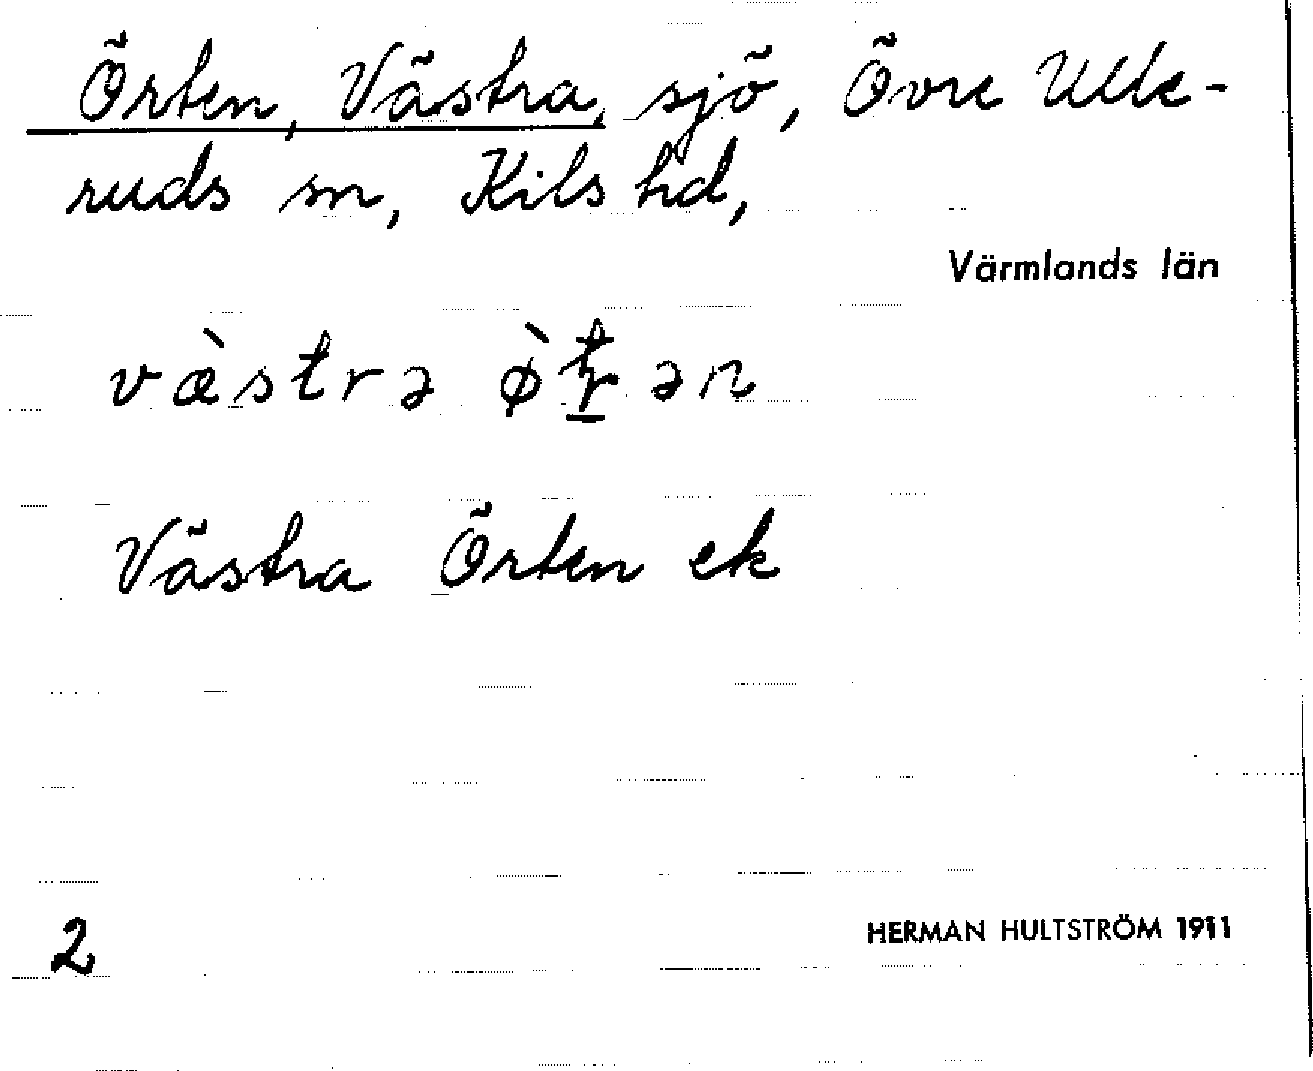 Örten, Västra, sjö, Övre Ulle-
ruds sn, Kils hd,
Värmlands län
væ̀strə ø̀ʈən
Västra Örten ek
2
HERMAN HULTSTRÖM 1911